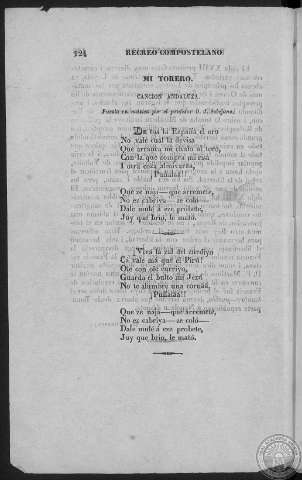 124 RECREO COMPOSTELANO
MI TORERO.
CANCION ANDALUZA
Puesta en música por el profesor D. J.
De toa la España el oro
No vale cuál la devisa
Que arranca mi chulo al toro,
Con la que compra mi risa
Y otra cosa
¡Puñalaá!!
Que ze najó—qué arremete,
No es cabriya—ze coló—
Dale mulé á ese probete,
Juy que brio, le mató.
Viva la sal del
Ce vale ma que el Pirú!
Ole con ole curriyo,
Guarda el bulto mi Jezú
No te alumbre una cornáá,
¡Puñalaá!!
Que ze najá—que arremete,
No es cabriya—ze coló—
Dale mulé á ese probete,
Juy que brio, le mató.